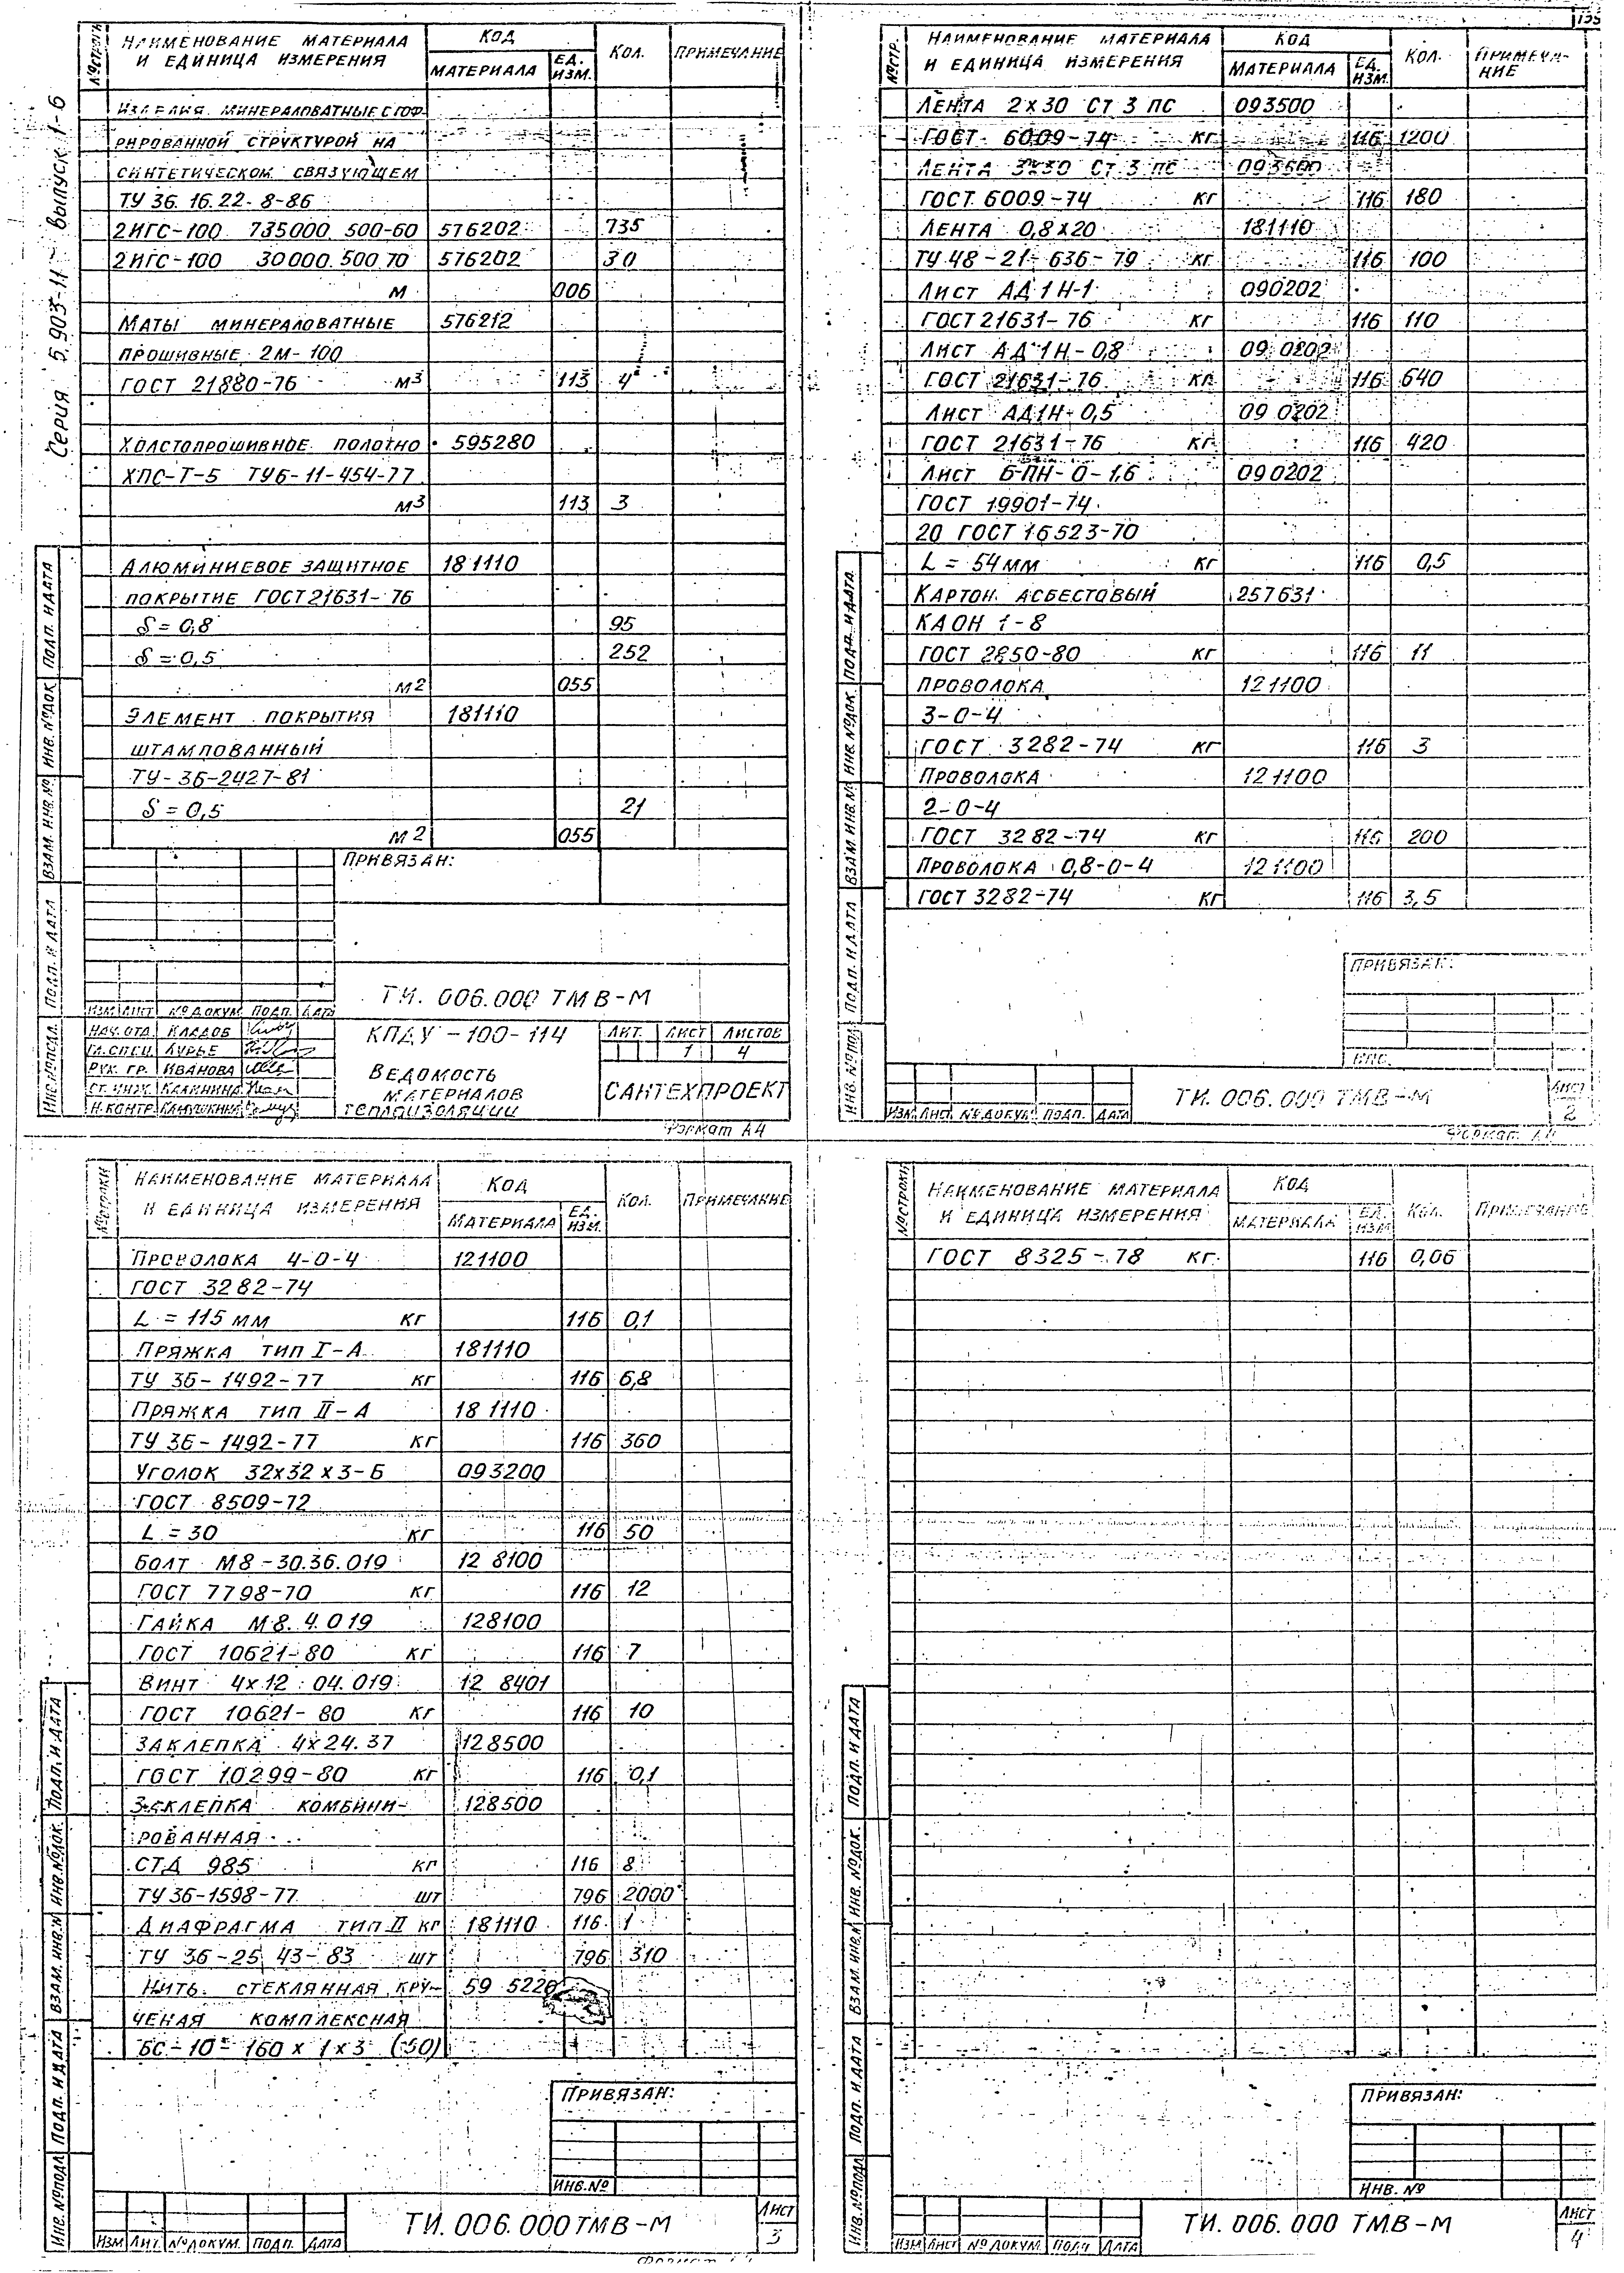 Серия 5.903-11 выпуск 1-6
№ строки НАИМЕНОВАНИЕ МАТЕРИАЛА И ЕДИНИЦА ИЗМЕРЕНИЯ КОД МАТЕРИАЛА ЕД. ИЗМ. КОЛ. ПРИМЕЧАНИЕ
ИЗДЕЛИЯ МИНЕРАЛОВАТНЫЕ С ГОФ-
РИРОВАННОЙ СТРУКТУРОЙ НА
СИНТЕТИЧЕСКОМ СВЯЗУЮЩЕМ
ТУ 36.16.22-8-86
2ИГС-100 735000.500-60 576202 735
2ИГС-100 30000.500.70 576202 30
М 006
МАТЫ МИНЕРАЛОВАТНЫЕ 576212
ПРОШИВНЫЕ 2М-100
ГОСТ 21880-76 М3 113 4
ХОЛСТОПРОШИВНОЕ ПОЛОТНО 595280
ХПС-Т-5 ТУ6-11-454-77
М3 113 3
АЛЮМИНИЕВОЕ ЗАЩИТНОЕ 181110
ПОКРЫТИЕ ГОСТ 21631-76
δ = 0,8 95
δ = 0,5 252
М2 055
ЭЛЕМЕНТ ПОКРЫТИЯ 181110
ШТАМПОВАННЫЙ
ТУ-36-2427-81
δ = 0,5 21
М2 055
ПРИВЯЗАН:
ТИ. 006.000 ТМВ-М
ИЗМ ЛИСТ № ДОКУМ. ПОДП. ДАТА
НАЧ. ОТД. КЛАДОВ
ГЛ. СПЕЦ. ЛУРЬЕ
РУК. ГР. ИВАНОВА
СТ. ИНЖ. КАЛИНИНА
Н. КОНТР.
КПДУ-100-114
ВЕДОМОСТЬ
МАТЕРИАЛОВ
ТЕПЛОИЗОЛЯЦИИ
ЛИТ. ЛИСТ ЛИСТОВ
1 4
САНТЕХПРОЕКТ
Формат А4
ИНВ. № ПОДЛ. ПОДП. И ДАТА ВЗАМ. ИНВ. № ИНВ. № ДОК. ПОДП. И ДАТА
№ СТР. НАИМЕНОВАНИЕ МАТЕРИАЛА И ЕДИНИЦА ИЗМЕРЕНИЯ КОД МАТЕРИАЛА ЕД. ИЗМ. КОЛ. ПРИМЕЧА-НИЕ
ЛЕНТА 2х30 Ст 3 ПС 093500
ГОСТ 6009-74 КГ 116 1200
ЛЕНТА 3х30 Ст 3 ПС 093500
ГОСТ 6009-74 КГ 116 180
ЛЕНТА 0,8х20 181110
ТУ 48-21-636-79 КГ 116 100
ЛИСТ АД 1Н-1 090202
ГОСТ 21631-76 КГ 116 110
ЛИСТ АД 1Н-0,8 09 0202
ГОСТ 21631-76 КГ 116 640
ЛИСТ АД1Н-0,5 09 0202
ГОСТ 21631-76 КГ 116 420
ЛИСТ Б-ПН-О-1,6 090202
ГОСТ 19901-74
20 ГОСТ 16523-70
L = 54 мм КГ 116 0,5
КАРТОН АСБЕСТОВЫЙ 257631
КАОН 1-8
ГОСТ 2850-80 КГ 116 11
ПРОВОЛОКА 121100
3-0-4
ГОСТ 3282-74 КГ 116 3
ПРОВОЛОКА 121100
2-0-4
ГОСТ 3282-74 КГ 116 200
ПРОВОЛОКА 0,8-0-4 121100
ГОСТ 3282-74 КГ 116 3,5
ПРИВЯЗАН:
ИЗМ ЛИСТ № ДОКУМ. ПОДП. ДАТА
ТИ. 006.000 ТМВ-М
ЛИСТ 2
Формат А4
ИНВ. № ПОДЛ. ПОДП. И ДАТА ВЗАМ ИНВ. № ИНВ. № ДОК. ПОДП. И ДАТА
№ СТРОКИ НАИМЕНОВАНИЕ МАТЕРИАЛА И ЕДИНИЦА ИЗМЕРЕНИЯ КОД МАТЕРИАЛА ЕД. ИЗМ. КОЛ. ПРИМЕЧАНИЕ
ПРОВОЛОКА 4-0-4 121100
ГОСТ 3282-74
L = 115 мм КГ 116 0,1
ПРЯЖКА ТИП I-А 181110
ТУ 36-1492-77 КГ 116 6,8
ПРЯЖКА ТИП II-А 18 1110
ТУ 36-1492-77 КГ 116 360
УГОЛОК 32х32х3-Б 093200
ГОСТ 8509-72
L = 30 КГ 116 50
БОЛТ М8-30.36.019 12 8100
ГОСТ 7798-70 КГ 116 12
ГАЙКА М8.4.019 128100
ГОСТ 10621-80 КГ 116 7
ВИНТ 4х12.04.019 12 8401
ГОСТ 10621-80 КГ 116 10
ЗАКЛЕПКА 4х24.37 128500
ГОСТ 10299-80 КГ 116 0,1
ЗАКЛЕПКА КОМБИНИ- 128500
РОВАННАЯ
СТД 985 КГ 116 8
ТУ 36-1598-77 ШТ 796 2000
ДИАФРАГМА ТИП II КГ 181110 116 1
ТУ 36-25 43-83 ШТ 796 310
НИТЬ СТЕКЛЯННАЯ КРУ- 59 5226
ЧЕНАЯ КОМПЛЕКСНАЯ
БС-10-160 х 1 х 3 (50)
ПРИВЯЗАН:
ИНВ. №
ИЗМ ЛИТ. № ДОКУМ. ПОДП. ДАТА
ТИ. 006.000 ТМВ-М
ЛИСТ 3
ИНВ. № ПОДЛ ПОДП. И ДАТА ВЗАМ. ИНВ. № ИНВ. № ДОК. ПОДП. И ДАТА
№ СТРОКИ НАИМЕНОВАНИЕ МАТЕРИАЛА И ЕДИНИЦА ИЗМЕРЕНИЯ КОД МАТЕРИАЛА ЕД. ИЗМ КОЛ. ПРИМЕЧАНИЕ
ГОСТ 8325-78 КГ 116 0,06
ПРИВЯЗАН:
ИНВ. №
ИЗМ ЛИСТ № ДОКУМ. ПОДП ДАТА
ТИ. 006.000 ТМВ-М
ЛИСТ 4
ИНВ. № ПОДЛ ПОДП. И ДАТА ВЗАМ. ИНВ. № ИНВ. № ДОК. ПОДП. И ДАТА